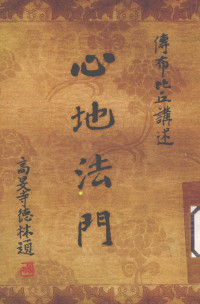 傳布比丘講述
心地法門
高旻寺德林題